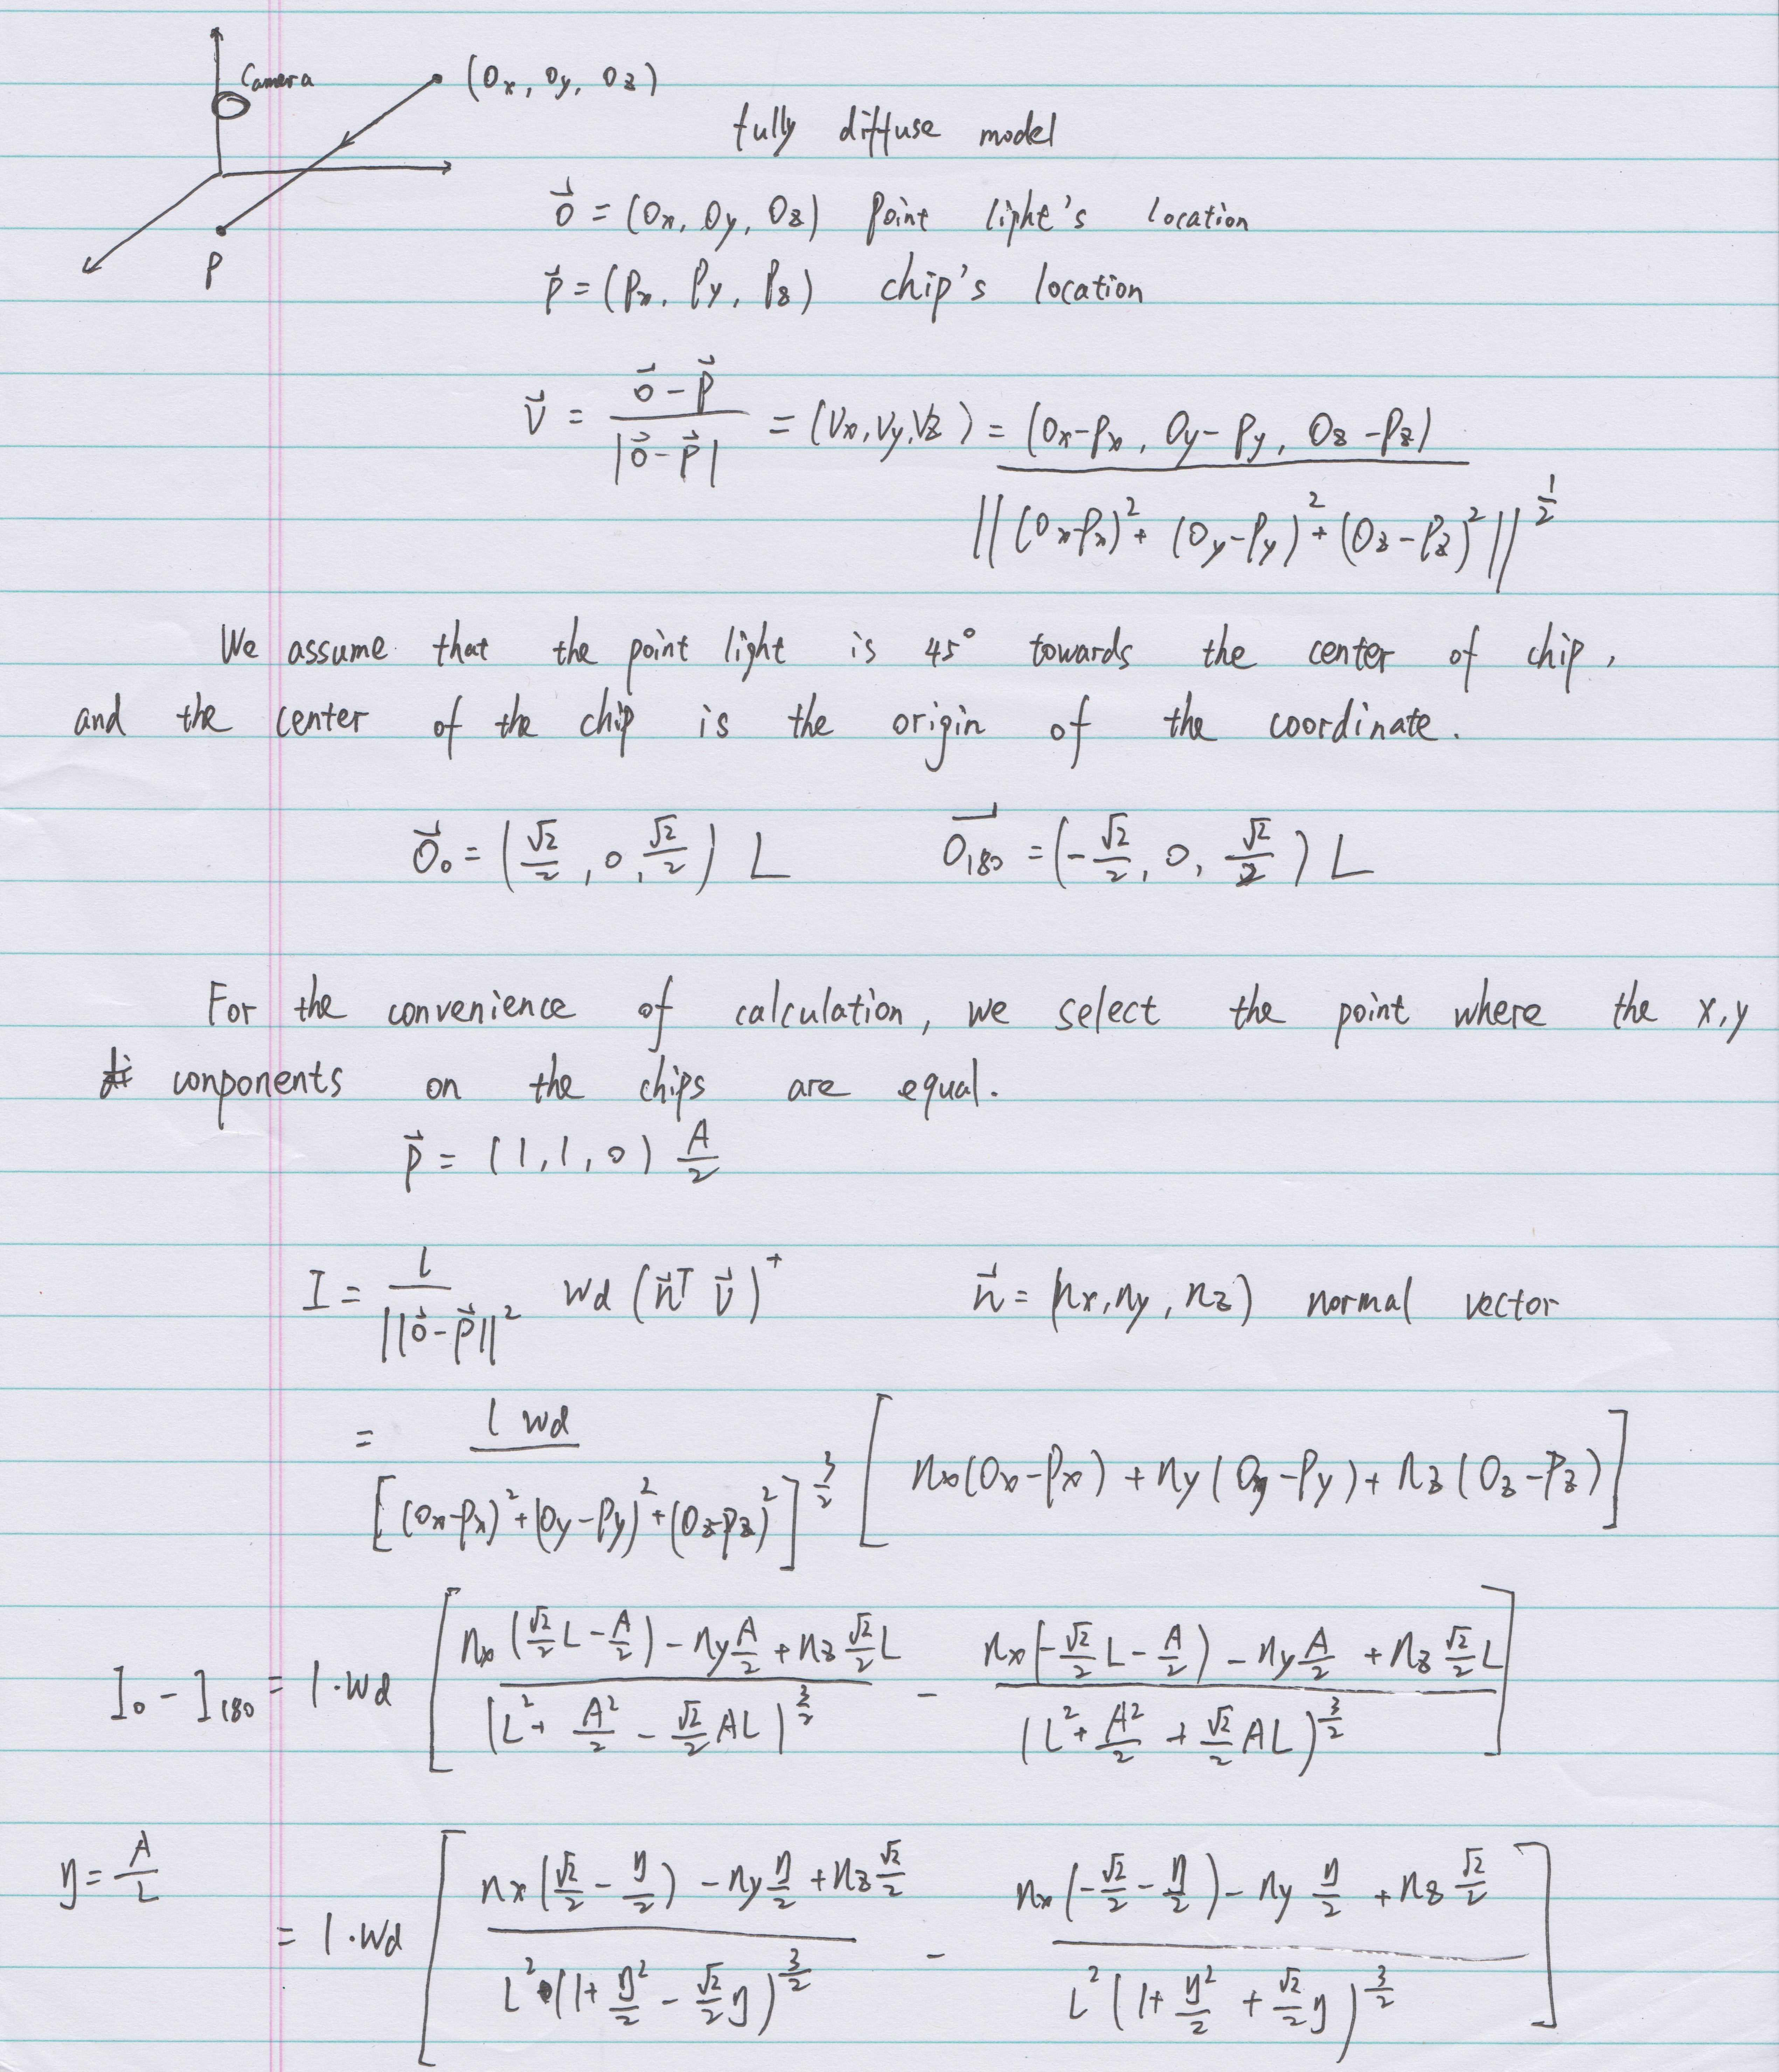 Camera
(Ox, Oy, Oz)
P
fully diffuse model
$\vec{o} = (O_x, O_y, O_z)$ Point light's location
$\vec{p} = (P_x, P_y, P_z)$ chip's location
$\vec{v} = \frac{\vec{o} - \vec{p}}{|\vec{o} - \vec{p}|} = (V_x, V_y, V_z) = \frac{(O_x - P_x, O_y - P_y, O_z - P_z)}{||(O_x - P_x)^2 + (O_y - P_y)^2 + (O_z - P_z)^2||^{\frac{1}{2}}}$
We assume that the point light is 45° towards the center of chip,
and the center of the chip is the origin of the coordinate.
$\vec{O}_0 = (\frac{\sqrt{2}}{2}, 0, \frac{\sqrt{2}}{2}) L$ $\vec{O_{180}} = (-\frac{\sqrt{2}}{2}, 0, \frac{\sqrt{2}}{2}) L$
For the convenience of calculation, we select the point where the x,y
conponents on the chips are equal.
$\vec{p} = (1, 1, 0) \frac{A}{2}$
$I = \frac{l}{||\vec{o} - \vec{p}||^2} W_d (\vec{n}^T \vec{v})^+$ $\vec{n} = (n_x, n_y, n_z)$ normal vector
$= \frac{l W_d}{[(O_x - P_x)^2 + (O_y - P_y)^2 + (O_z - P_z)^2]^{\frac{3}{2}}} [n_x(O_x - P_x) + n_y(O_y - P_y) + n_z(O_z - P_z)]$
$I_0 - I_{180} = l \cdot W_d [\frac{n_x(\frac{\sqrt{2}}{2}L - \frac{A}{2}) - n_y\frac{A}{2} + n_z\frac{\sqrt{2}}{2}L}{(L^2 + \frac{A^2}{2} - \frac{\sqrt{2}}{2}AL)^{\frac{3}{2}}} - \frac{n_x(-\frac{\sqrt{2}}{2}L - \frac{A}{2}) - n_y\frac{A}{2} + n_z\frac{\sqrt{2}}{2}L}{(L^2 + \frac{A^2}{2} + \frac{\sqrt{2}}{2}AL)^{\frac{3}{2}}}]$
$\eta = \frac{A}{L}$
$= l \cdot W_d [\frac{n_x(\frac{\sqrt{2}}{2} - \frac{\eta}{2}) - n_y\frac{\eta}{2} + n_z\frac{\sqrt{2}}{2}}{L^2 \cdot (1 + \frac{\eta^2}{2} - \frac{\sqrt{2}}{2}\eta)^{\frac{3}{2}}} - \frac{n_x(-\frac{\sqrt{2}}{2} - \frac{\eta}{2}) - n_y\frac{\eta}{2} + n_z\frac{\sqrt{2}}{2}}{L^2 (1 + \frac{\eta^2}{2} + \frac{\sqrt{2}}{2}\eta)^{\frac{3}{2}}}]$